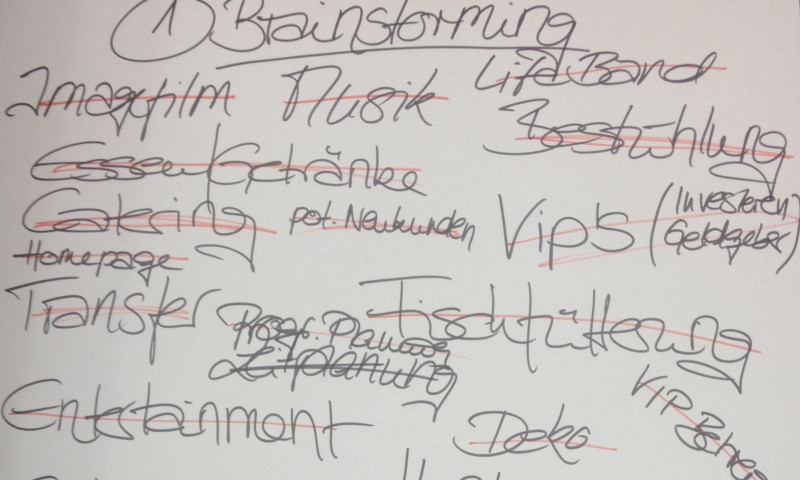 ① Brainstorming
Imagefilm Musik Life Band
Bestühlung
Essen/Getränke
Catering pot. Neukunden Vip's (Investoren
Geldgeber)
Homepage
Transfer Fischfütterung
Zeitplanung
Entertainment Deko
VIP